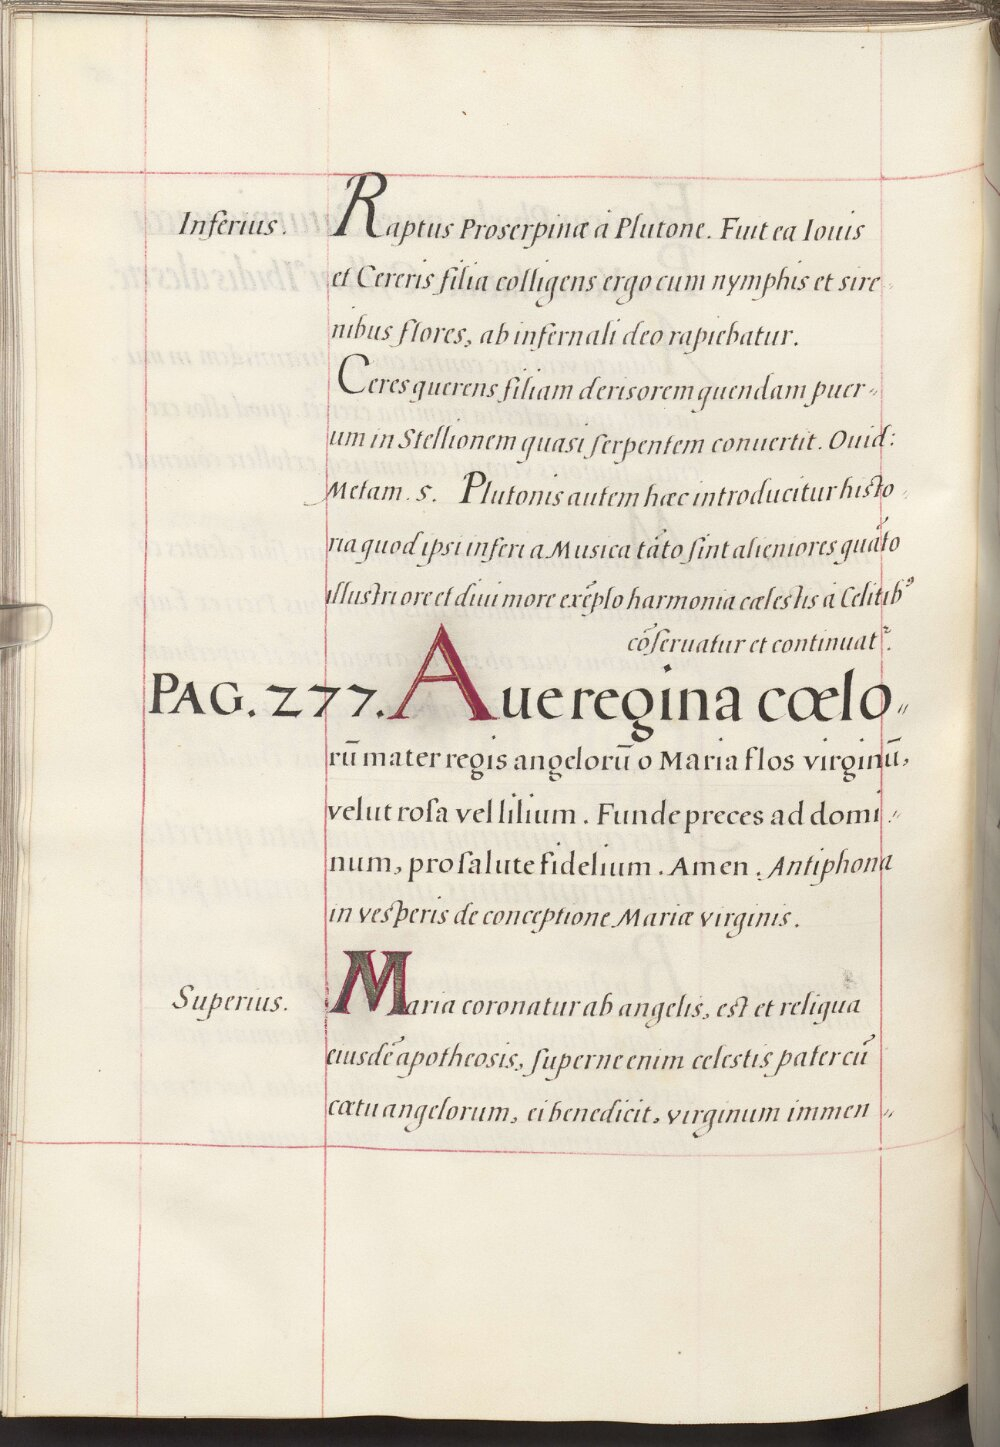 Inferius. Raptus Proserpinæ à Plutone. Fuit ea Iouis
et Cereris filia colligens ergo cum nymphis et sire-
nibus flores, ab infernali deo rapiebatur.
Ceres querens filiam derisorem quendam puer-
um in Stellionem quasi ſerpentem conuertit. Ouid:
Metam. 5. Plutonis autem hæc introducitur histo-
ria quod ipsi inferi a Musica tãto ſint alieniores quãto
illustriore et diui more exẽplo harmonia cælestis à Celitibꝰ
cõſeruatur et continuatᷣ.
PAG. 277. Aue regina cœlo-
rũ mater regis angelorũ o Maria flos virginũ,
velut roſa vel lilium. Funde preces ad domi-
num, pro ſalute fidelium. Amen. Antiphona
in vesperis de conceptione Mariæ virginis.
Superius. Maria coronatur ab angelis, est et reliqua
eiusdẽ apotheosis, ſuperne enim celestis pater cũ
cœtu angelorum, ei benedicit, virginum immen-